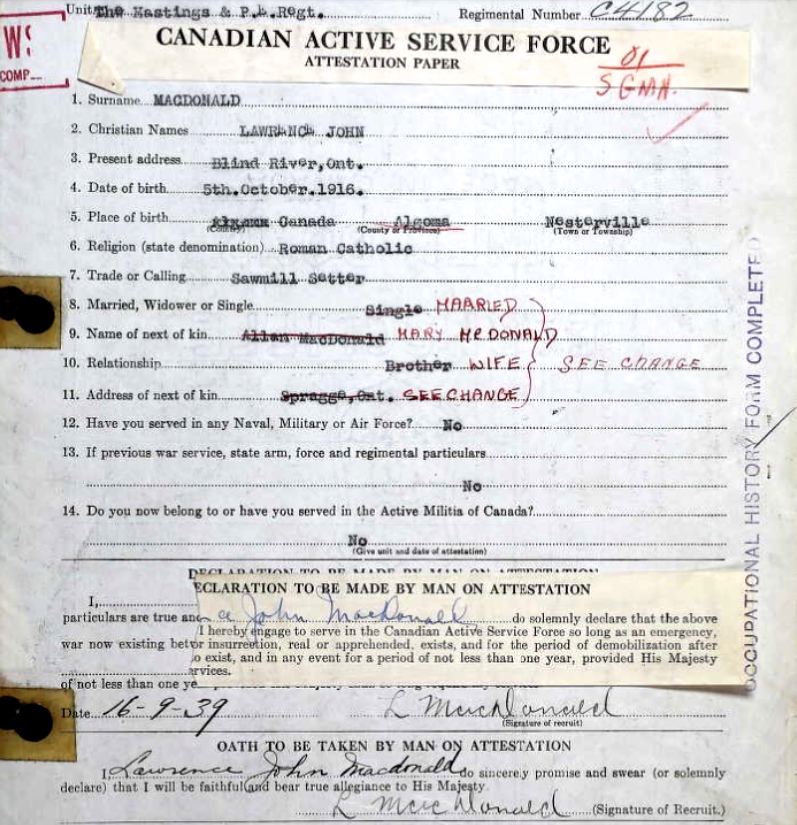 Unit The Hastings & P.E. Regt. Regimental Number C4182
CANADIAN ACTIVE SERVICE FORCE
ATTESTATION PAPER
SGMN.
COMP
1. Surname MACDONALD
2. Christian Names LAWRENCE JOHN
3. Present address Blind River, Ont.
4. Date of birth 5th. October. 1916.
5. Place of birth Canada Algoma Nesterville
(Country) (County or Province) (Town or Township)
6. Religion (state denomination) Roman Catholic
7. Trade or Calling Sawmill Setter
8. Married, Widower or Single Single MAARIED
9. Name of next of kin Allan MacDonald MARY McDONALD
10. Relationship Brother WIFE SEE CHANGE
11. Address of next of kin Spragge, Ont. SEE CHANGE
12. Have you served in any Naval, Military or Air Force? No
13. If previous war service, state arm, force and regimental particulars
No
14. Do you now belong to or have you served in the Active Militia of Canada?
No
(Give unit and date of attestation)
DECLARATION TO BE MADE BY MAN ON ATTESTATION
ECLARATION TO BE MADE BY MAN ON ATTESTATION
I,
particulars are true and John MacDonald do solemnly declare that the above
I hereby engage to serve in the Canadian Active Service Force so long as an emergency,
war now existing betw or insurrection, real or apprehended, exists, and for the period of demobilization after
o exist, and in any event for a period of not less than one year, provided His Majesty
rvices.
of not less than one ye
Date 16-9-39 L MacDonald
(Signature of recruit)
OATH TO BE TAKEN BY MAN ON ATTESTATION
I, Lawrence John Macdonald do sincerely promise and swear (or solemnly
declare) that I will be faithful and bear true allegiance to His Majesty.
L MacDonald (Signature of Recruit.)
OCCUPATIONAL HISTORY FORM COMPLETED